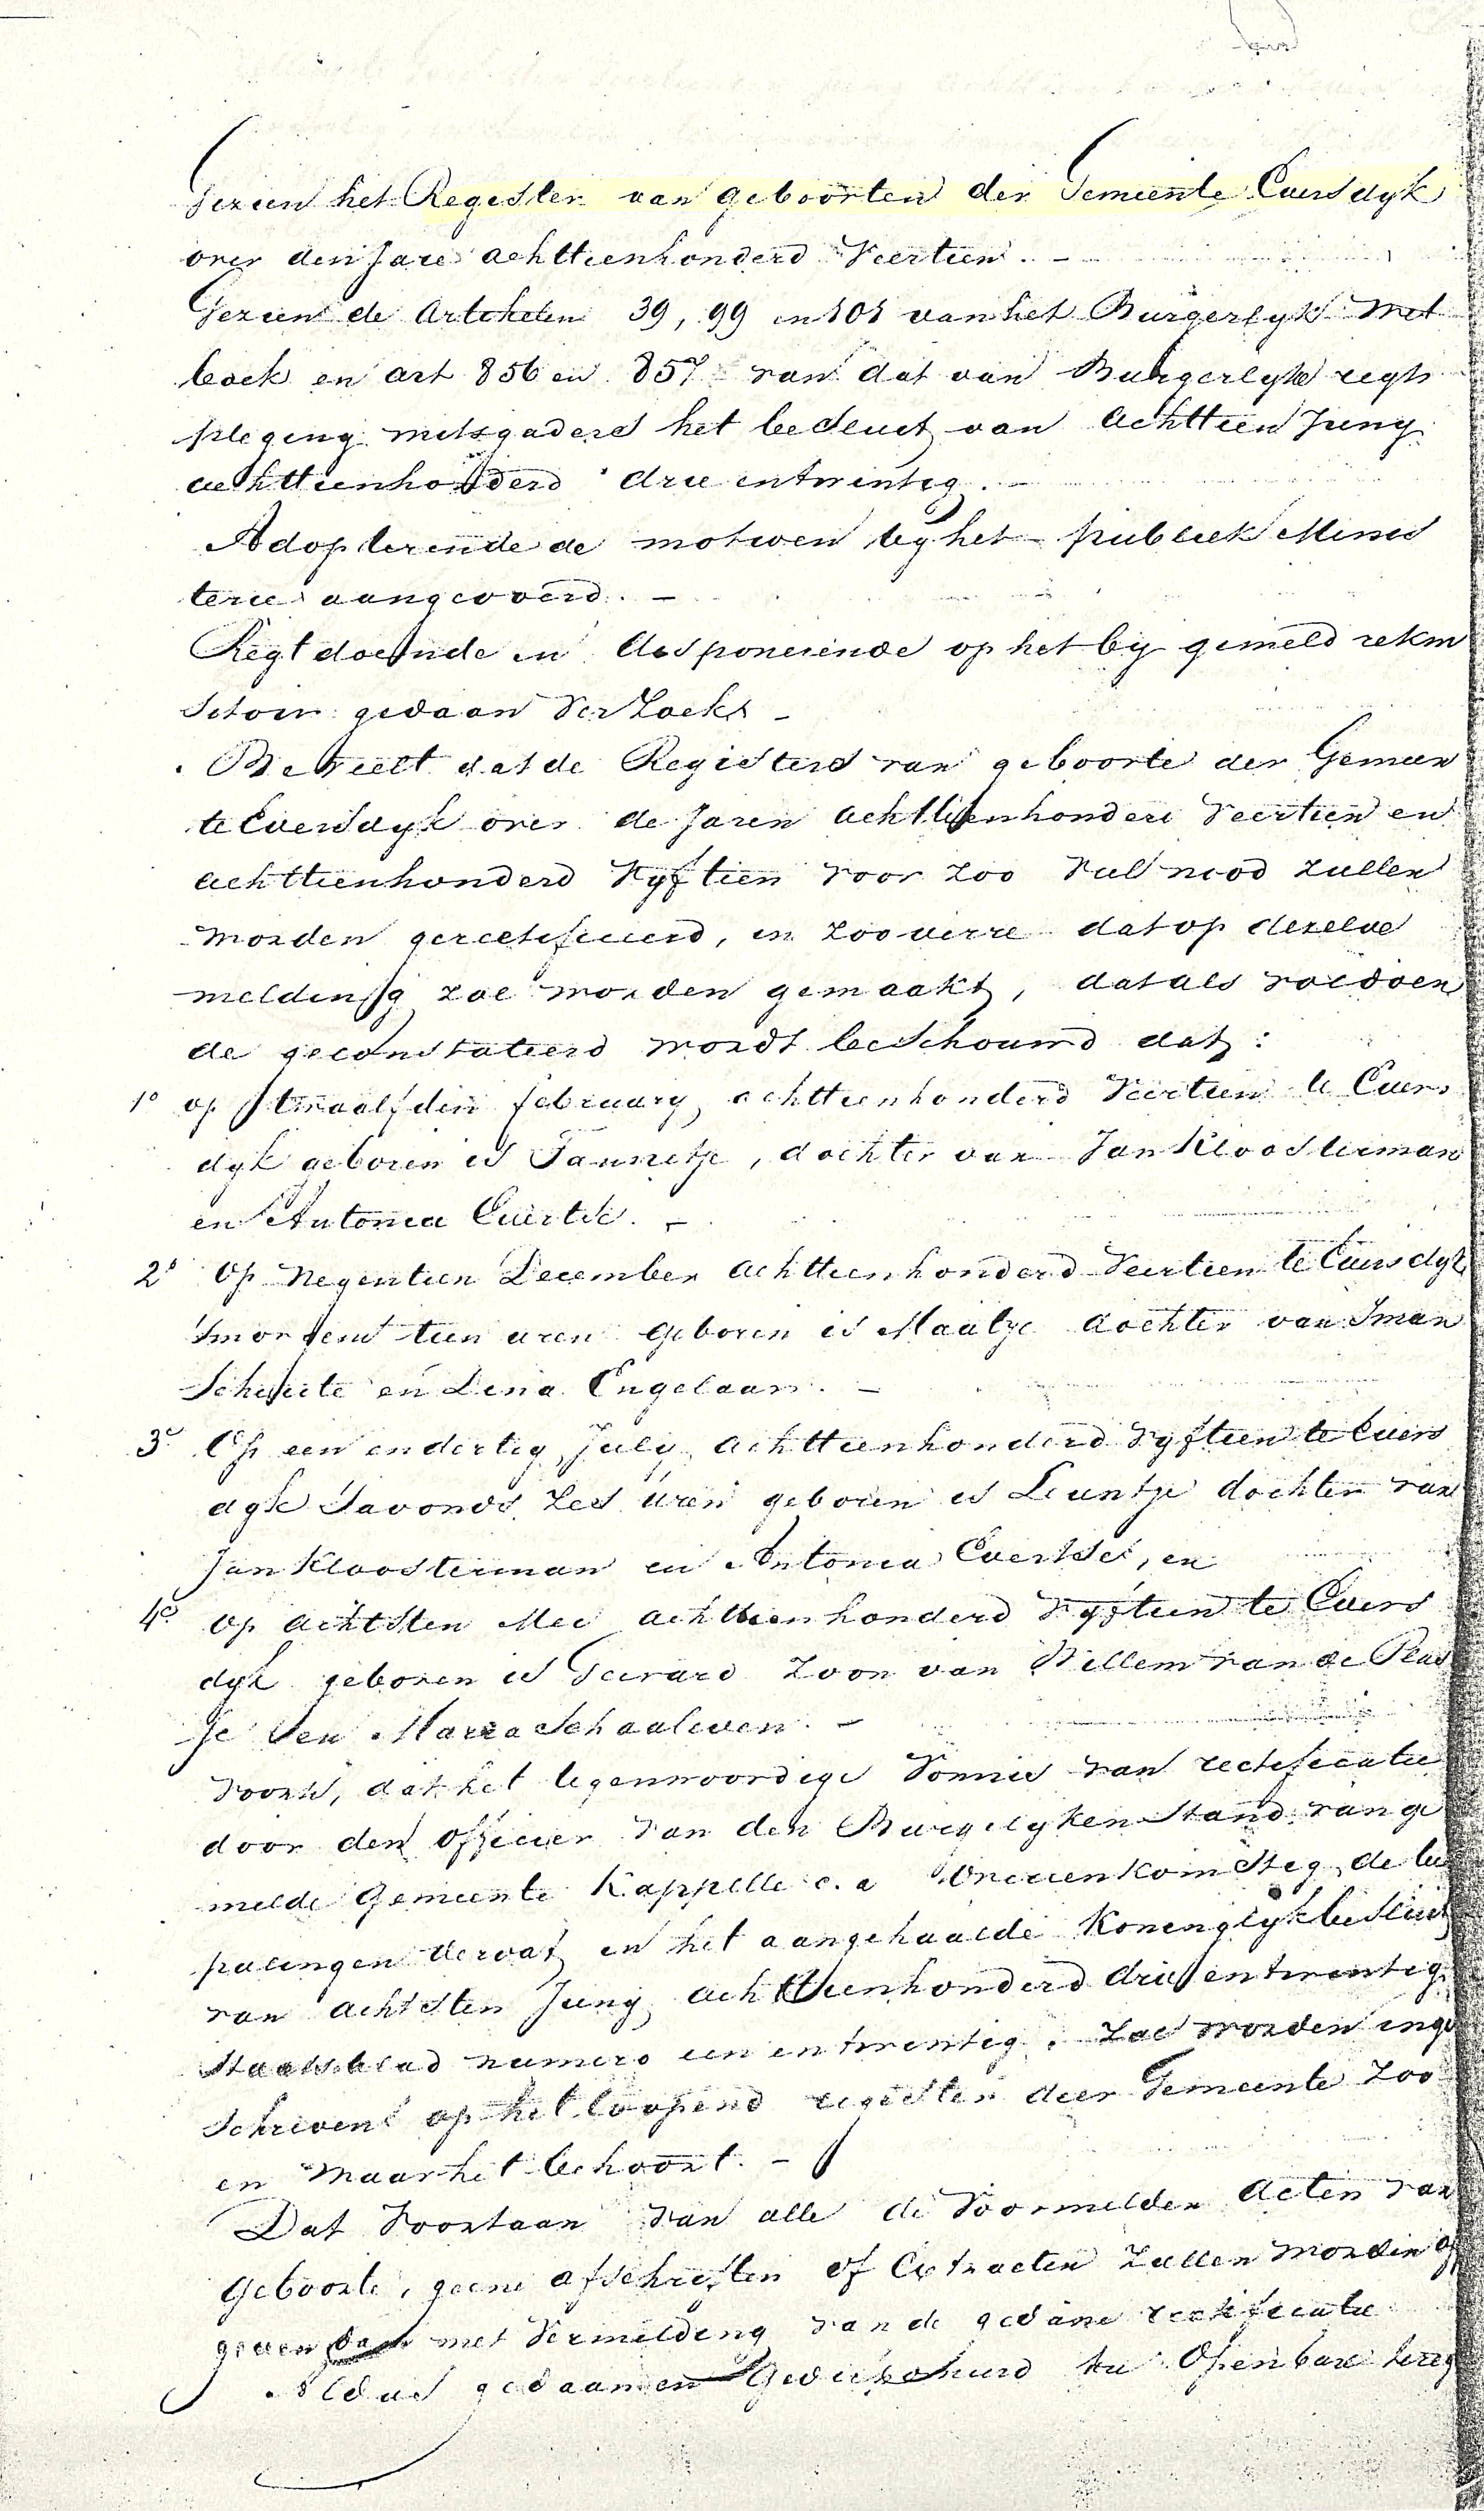 Gezien het Register van geboorten der Gemeente Eversdyk
over den Jare achttienhonderd Veertien. -
Gezien de Artikelen 39, 99 en 101 van het Burgerlyk Wet
boek en art 856 en 857 van dat van Burgerlyke regts
pleging mitsgaders het besluit van achttien Juny
achttienhonderd drie entwintig. -
Adopterende de motiven by het publiek Minis
terie aangevoerd. -
Regtdoende en disponerende op het by gemeld rekwi
sitoir gedaan Verzoek -
Beveelt dat de Registers van geboorte der Gemeen
te Eversdyk over de Jaren achttienhonderd Veertien en
achttienhonderd Vyftien voor zoo Veel nood zullen
worden gerectificeerd, in zooverre dat op dezelve
melding zal worden gemaakt, dat als voldoen
de geconstateerd wordt beschouwd dat:
1° op twaalfden february achttienhonderd Veertien te Evers
dyk geboren is Jannetje, dochter van Jan Kloosterman
en Antonia Evertse. -
2° Op Negentien December achttienhonderd Veertien te Eversdyk
Smorgens tien uren geboren is Maatje dochter van Iman
Schuite en Lena Engelaar. -
3° Op een en dertig July achttienhonderd Vyftien te Evers
dyk Savonds Zes uren geboren is Leuntje dochter van
Jan Kloosterman en Antonia Evertse, en
4° op achtsten Mei achttienhonderd Vyftien te Evers
dyk geboren is Geerard Zoon van Willem van de Plas
se en Maria Schaaleven. -
Voorts, dat het tegenwoordige Vonnis van rectificatie
door den officier van den Burgelyken Stand van ge
melde Gemeente Kappelle c. a Overeenkomstig de be
palingen vervat in het aangehaalde Koninglyk besluit
van achtsten Juny achttienhonderd drie en twentig
Staatsblad numero een en twentig. zal worden inge
schreven op het loopend register dier Gemeente Zoo
en waar het behoort. -
Dat Voortaan van alle de Voormelden acten van
Geboorte, geene afschriften of Extracten zullen worden af
geven dan met Vermelding van de gedane rectificatie
Aldus gedaan en Gewezen ter Openbare tereg